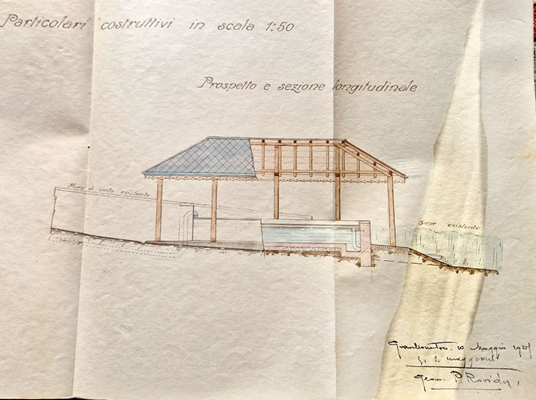 Particolari costruttivi in scala 1:50
Prospetto e sezione longitudinale
Muro di cinta esistente
esistente
Maggio
Geom. P.